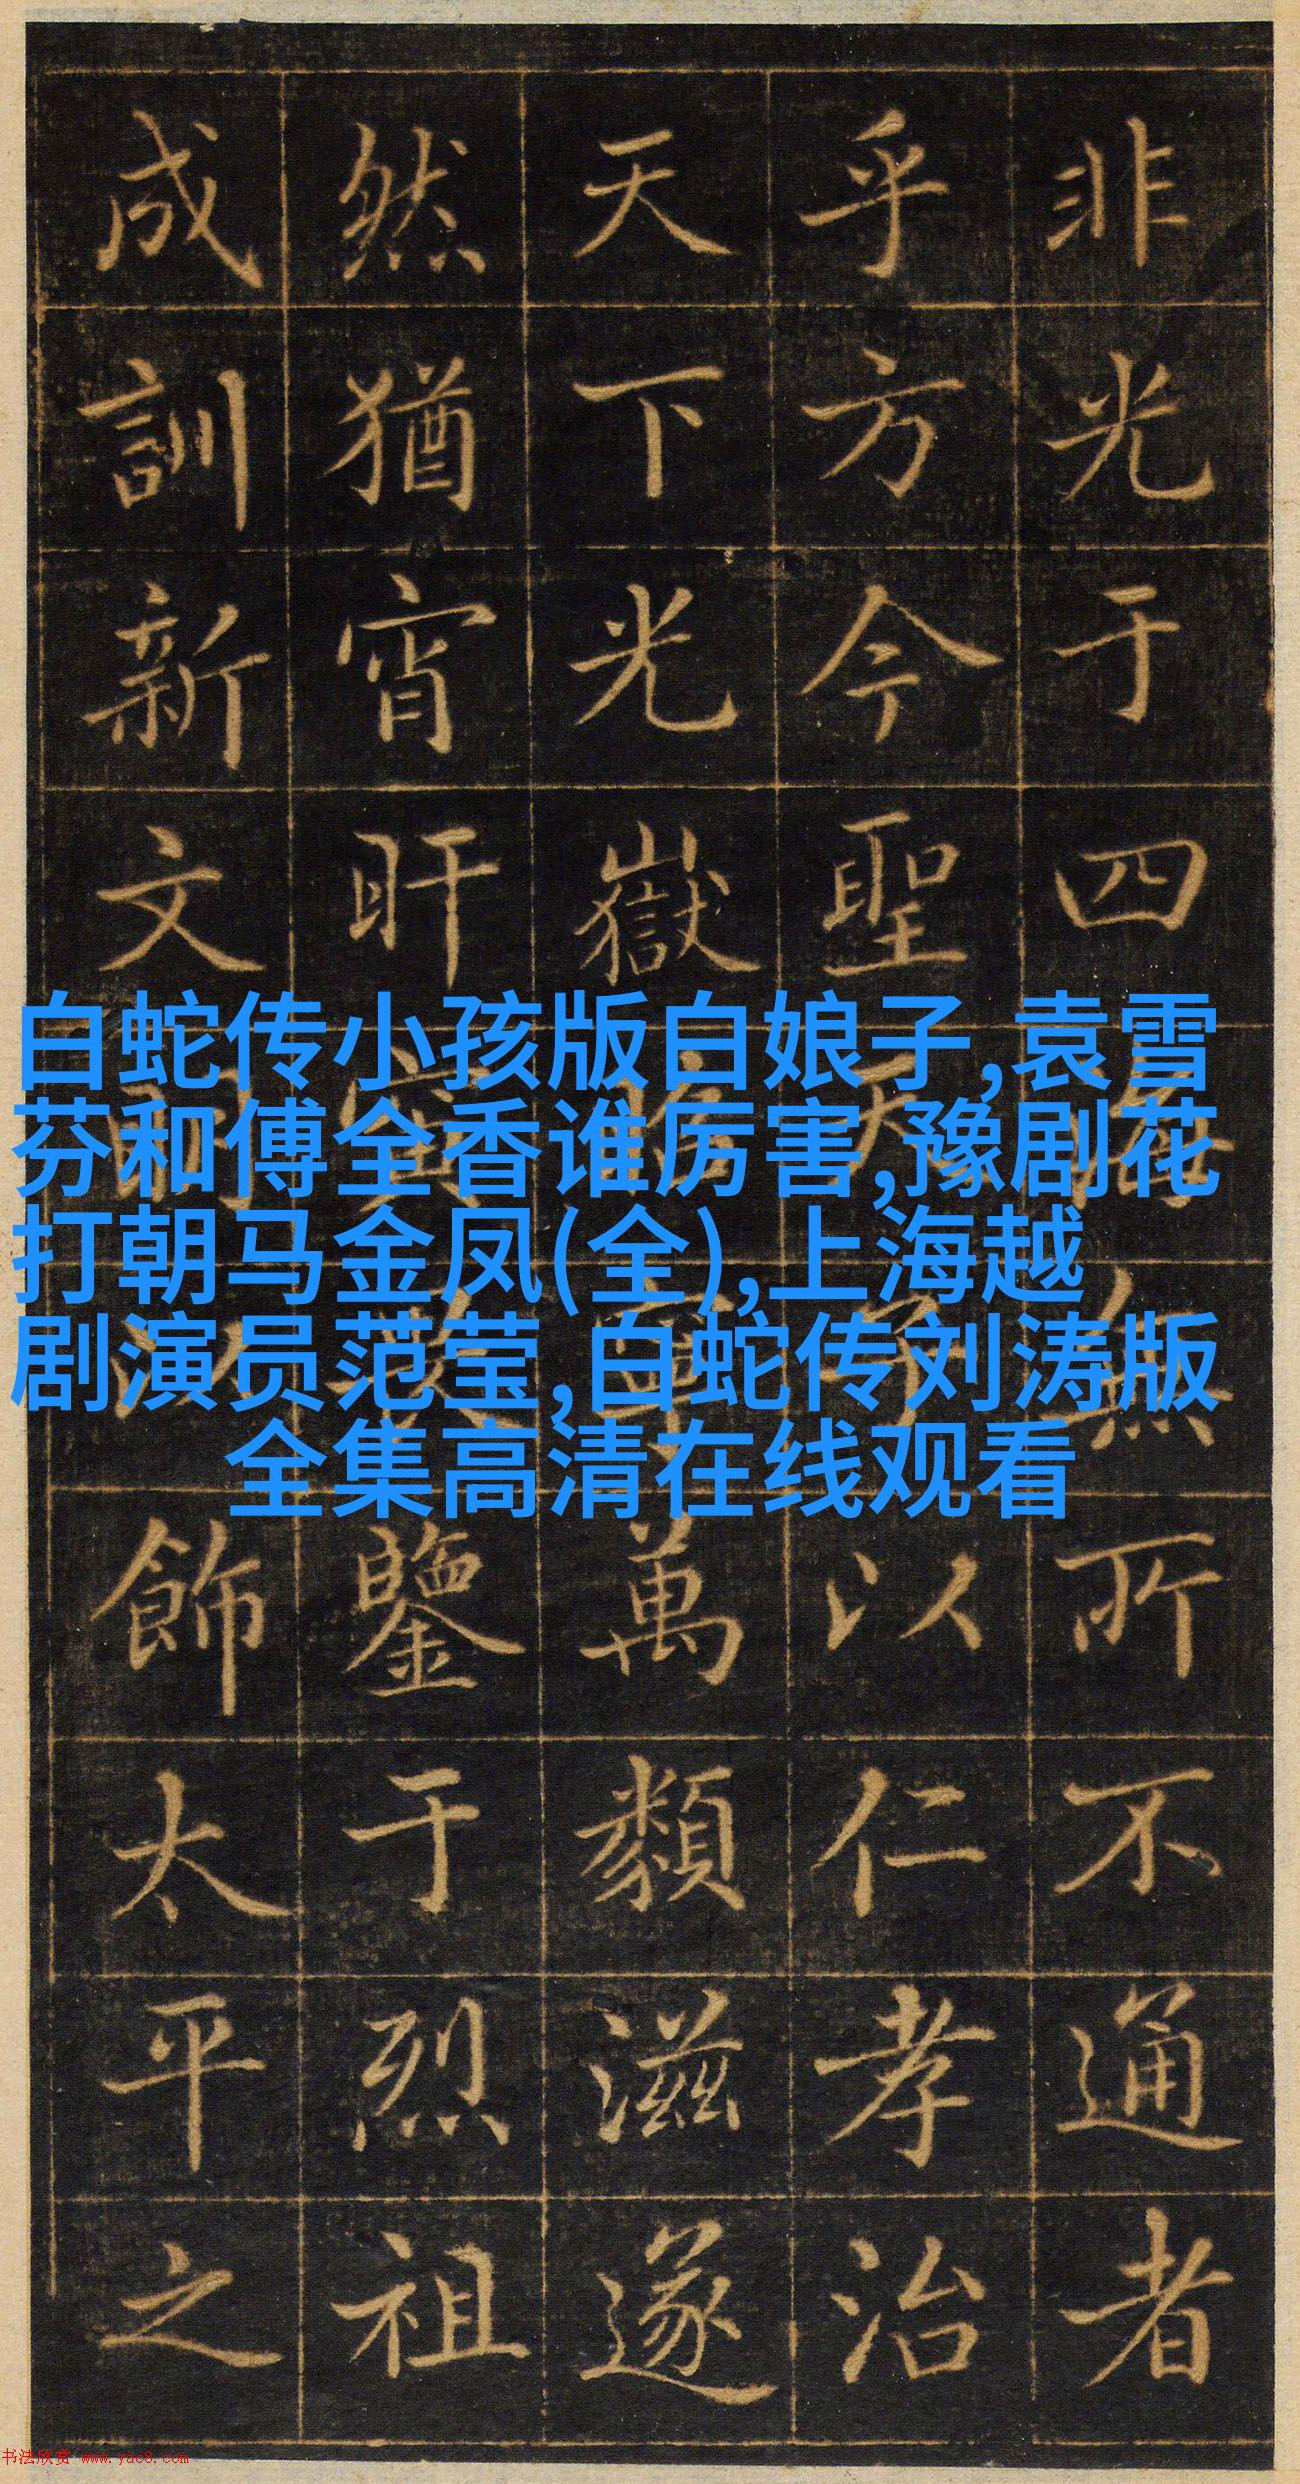 非光于四海無所不通者
乎方今聖天子以仁孝治
天下光嶽萬類滋遂
然猶宵旰鑒于烈祖
成訓新文飾太平之
白蛇传小孩版白娘子,袁雪
芬和傅全香谁厉害,豫剧花
打朝马金凤(全),上海越
剧演员范莹,白蛇传刘涛版
全集高清在线观看
书法欣赏 www.yac8.com